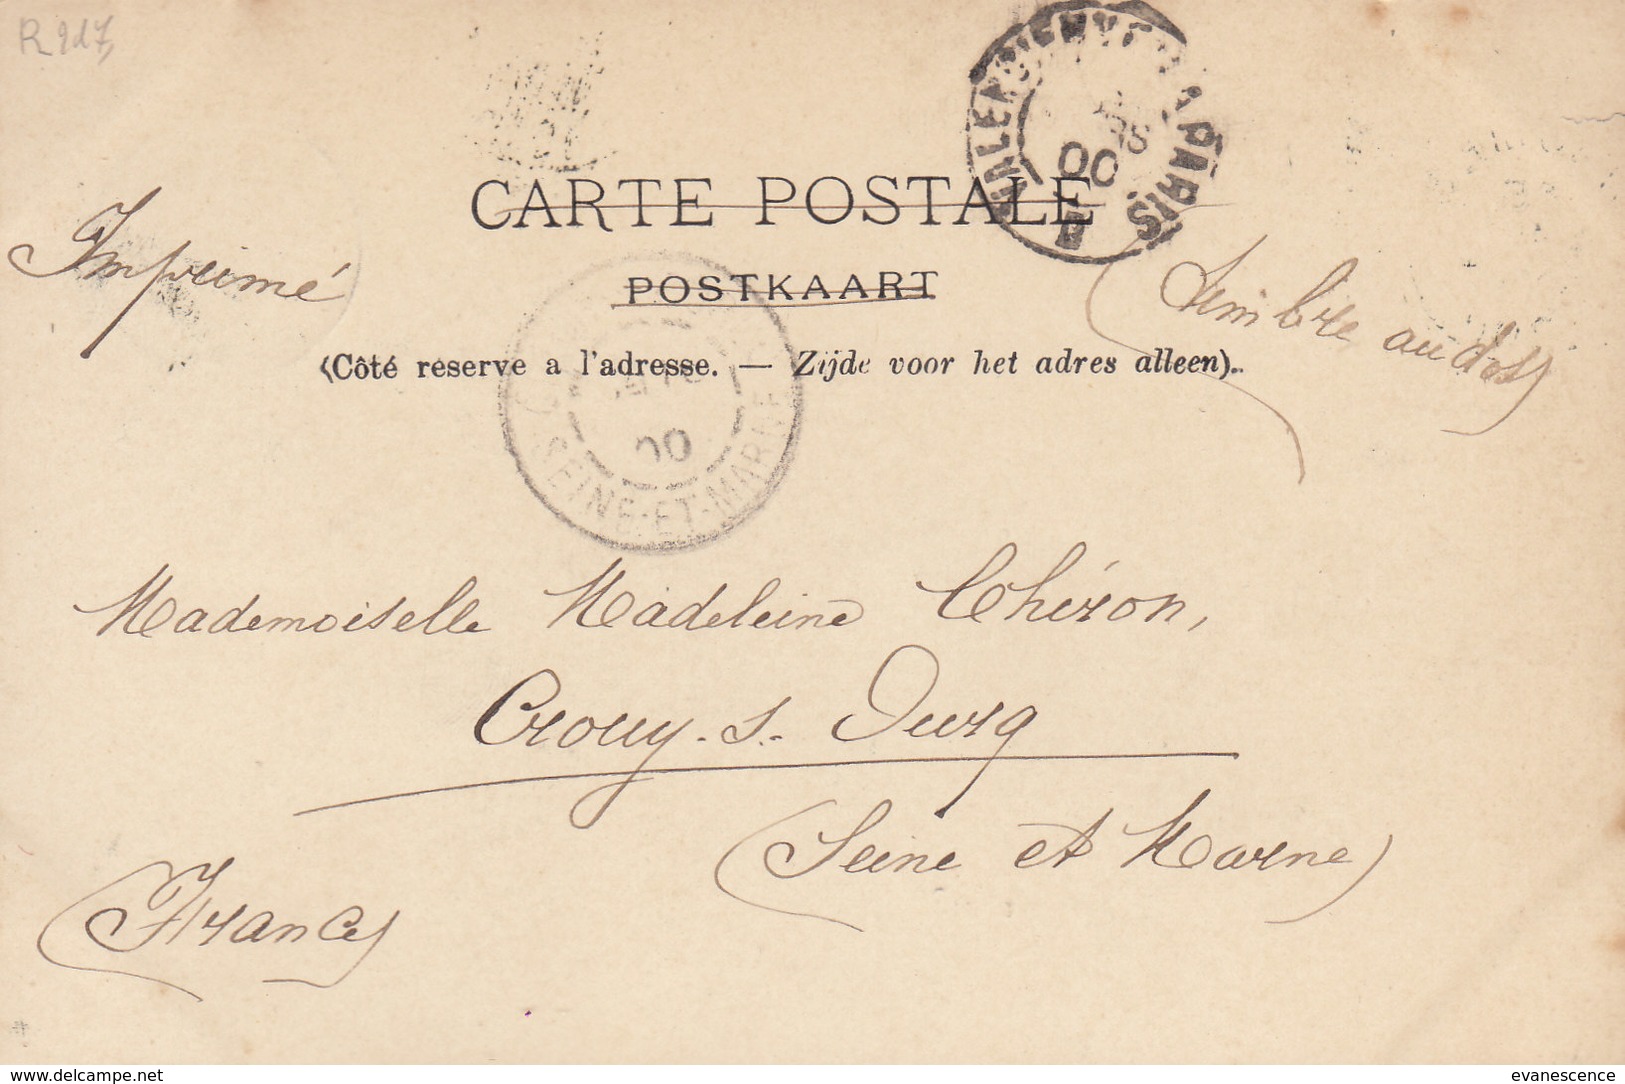 R 9d7,
VALENCIENNES A PARIS
00
CARTE POSTALE
Imprimé
POSTKAART
(Timbre au dos)
(Côté reserve a l'adresse. — Zijde voor het adres alleen).
00
SEINE-ET-MARNE
Mademoiselle Madeleine Chéron,
Crouy-s.-Ourq
(Seine et Marne)
(France)
www.delcampe.net
evanescence